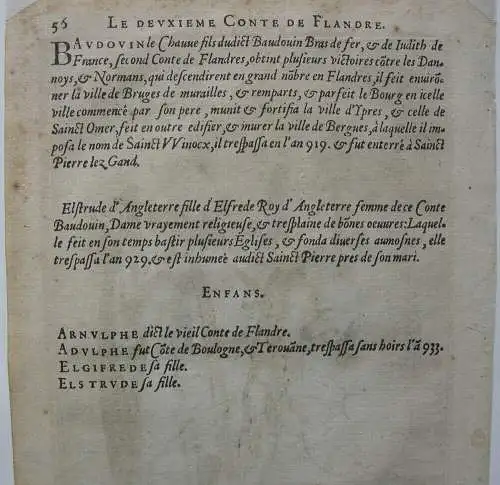 56 LE DEVXIEME CONTE DE FLANDRE.
BAVDOVIN le Chauve fils dudict Baudouin Bras de fer, & de Iudith de
France, second Conte de Flandres, obtint plusieurs victoires cōtre les Dan-
noys, & Normans, qui descendirent en grand nōbre en Flandres, il feit enuirō-
ner la ville de Bruges de murailles, & remparts, & parfeit le Bourg en icelle
ville commencé par son pere, munit & fortifia la ville d'Ypres, & celle de
Sainct Omer, feit en outre edifier, & murer la ville de Bergues, à laquelle il im-
posa le nom de Sainct VVinocx, il trespassa en l'an 919. & fut enterré à Sainct
Pierre lez Gand.
Elstrude d'Angleterre fille d'Elfrede Roy d'Angleterre femme de ce Conte
Baudouin, Dame vrayement religieuse, & tresplaine de bōnes oeuures: Laquel-
le feit en son temps bastir plusieurs Eglises, & fonda diuerses aumosnes, elle
trespassa l'an 929. & est inhumée audict Sainct Pierre pres de son mari.
ENFANS.
ARNVLPHE dict le vieil Conte de Flandre.
ADVLPHE fut Cōte de Boulogne, & Terouāne, trespassa sans hoirs l'ā 933.
ELGIFREDE sa fille.
ELSTRVDE sa fille.